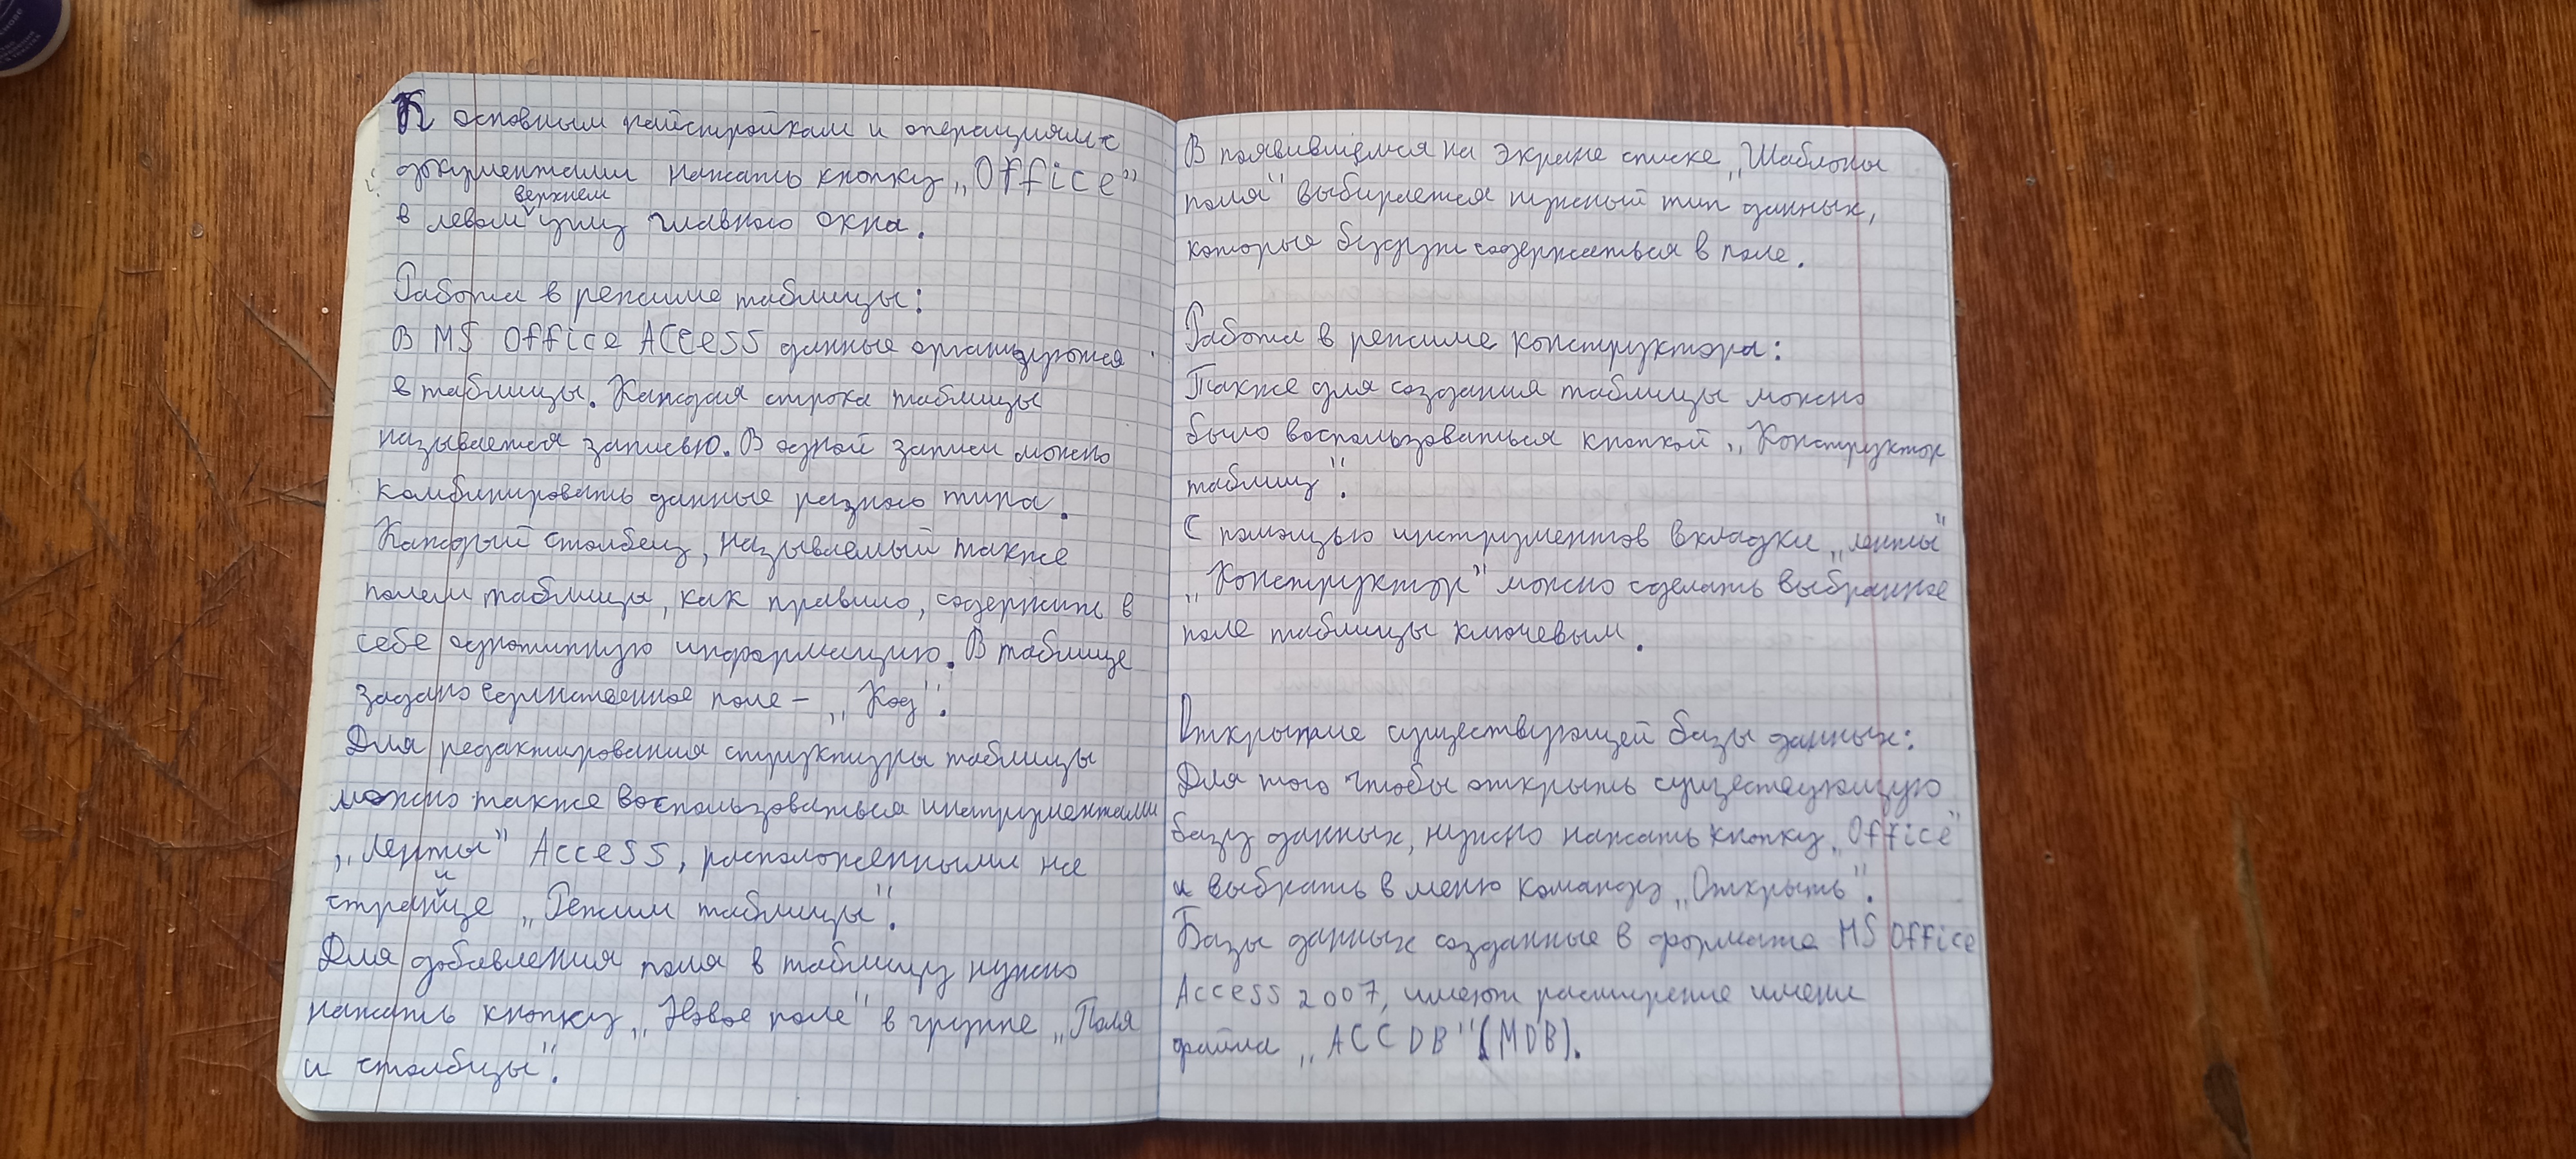 К основным найстройкам и операциям с
документами нажать кнопку „Office”
в левом верхнем углу главного окна.
Работа в режиме таблицы:
В MS Office Access данные организуются
в таблицы. Каждая строка таблицы
называется записью. В одной записи можно
комбинировать данные разного типа.
Каждый столбец, называемый также
полем таблицы, как правило, содержит в
себе однотипную информацию. В таблице
задано единственное поле – „Код”.
Для редактирования структуры таблицы
можно также воспользоваться инструментами
„Ленты” Access, расположенными на
странице „Режим таблицы”.
Для добавления поля в таблицу нужно
нажать кнопку „Новое поле” в группе „Поля
и столбцы”.
В появившемся на экране списке „Шаблоны
поля” выбирается нужный тип данных,
которые будут содержаться в поле.
Работа в режиме конструктора:
Также для создания таблицы можно
было воспользоваться кнопкой „Конструктор
таблиц”.
С помощью инструментов вкладки „ленты”
„Конструктор” можно сделать выбранное
поле таблицы ключевым.
Открытие существующей базы данных:
Для того чтобы открыть существующую
базу данных, нужно нажать кнопку „Office”
и выбрать в меню команду „Открыть”.
Базы данных созданные в формате MS Office
Access 2007, имеют расширение имени
файла „ACCDB” (MDB).